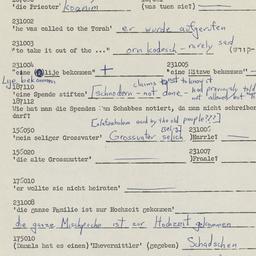 'die Priester' koanim (was tuen sie?)
231002
'he was called to the Torah' er wurde aufgerufen
231003
"to take it out of the ..." orn kodesh - rarely said
231004 231005
'eine Alije bekommen' + 'eine Mitzwe bekommen'
Alye bekommen
187110
'eine Spende stiften' [schnodern - not done -
187112
Wie hat man die Spenden am Schabbes notiert, da man nicht schreiben
darf?
155050 231006
'mein seliger Grossvater' Grossvater selich 'Harrle'
155020 231007
'die alte Grossmutter' 'Fraale'
175010
'er wollte sie nicht heiraten'
231008
'die ganze Familie ist zur Hochzeit gekommen'
die ganze Mischpoche ist zur Hochzeit gekommen
175010
(Damals hat es einen) 'Ehevermittler' (gegeben) Schadschen